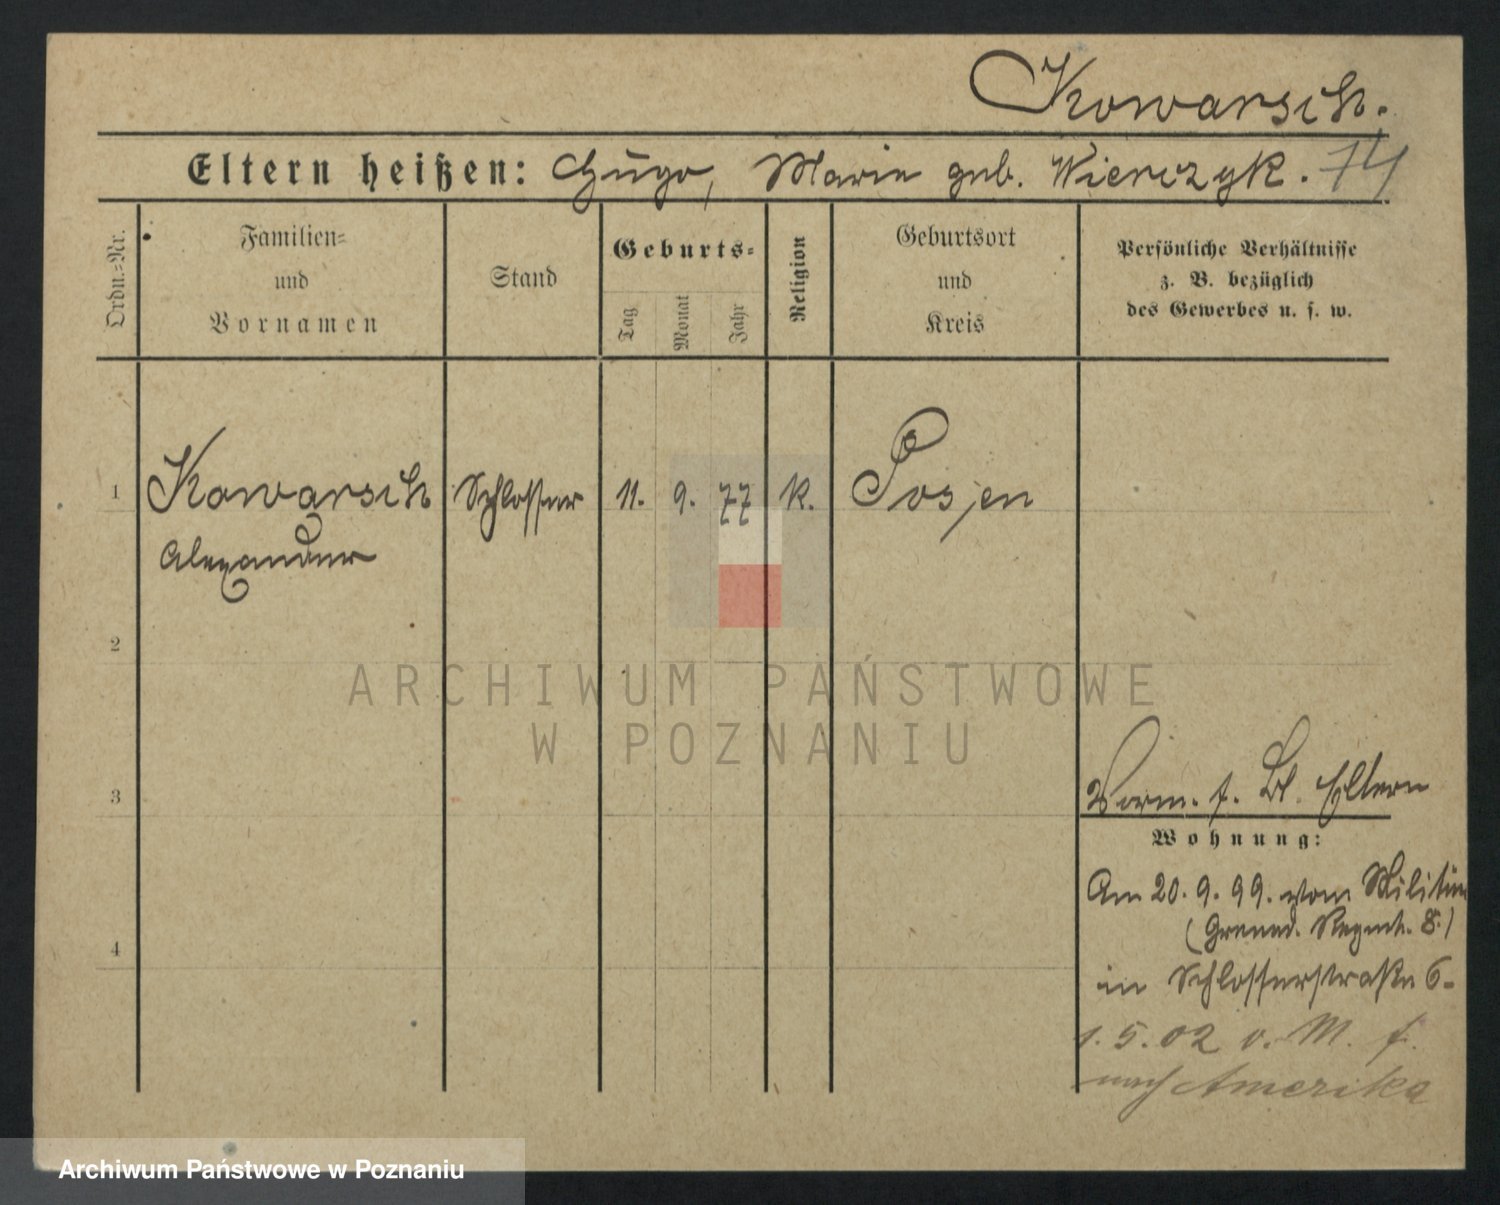 Kowarsch.
Eltern heißen: Hugo, Marie geb. Wierczyk. 74
Ordn.=Nr.
Familien=
und
Vornamen
Stand
Geburts=
Tag
Monat
Jahr
Religion
Geburtsort
und
Kreis
Persönliche Verhältnisse
z. B. bezüglich
des Gewerbes u. s. w.
1 Kowarsch Schlosser 11. 9. 77 K. Posen
Alexander
2
ARCHIWUM PAŃSTWOWE
W POZNANIU
3
Vorm. f. Bl. Eltern
Wohnung:
Am 20. 9. 99. vom Militär
(Grenad. Regmt. 8.)
4
in Schlosserstraße 6.
1. 5. 02 v. M. f.
nach Amerika
Archiwum Państwowe w Poznaniu